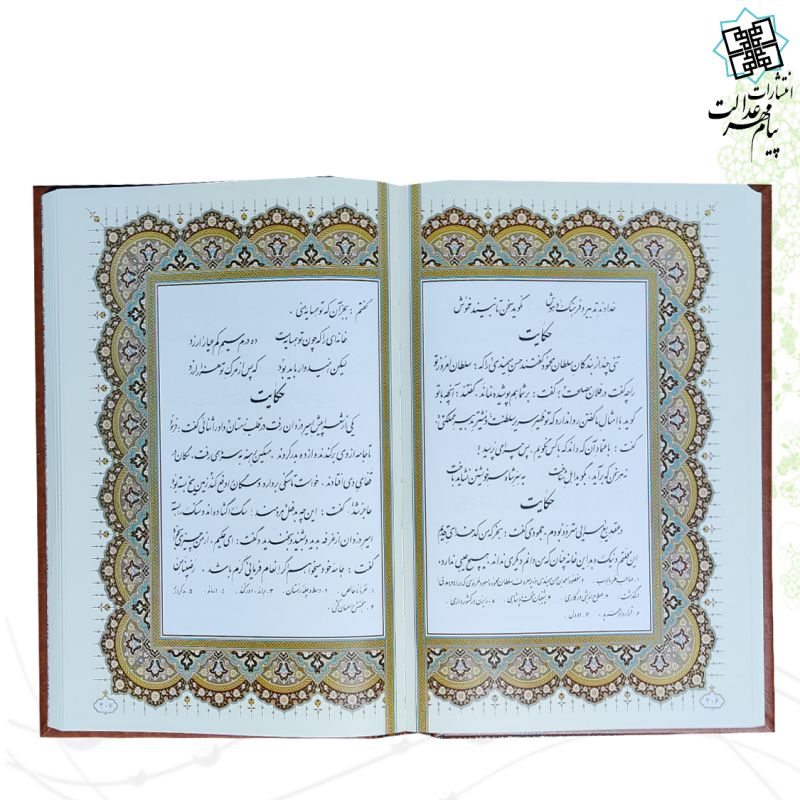 انتشارات
پیام مهر عدالت
خداوند تدبیر و فرهنگ و هوش نگوید سخن تا نبیند خموش
حکایت
تنی چند از بندگان سلطان محمود گفتند حسن میمندی را که: سلطان امروز تو
را چه گفت در فلان مصلحت؟ گفت: بر شما هم پوشیده نماند، گفتند: آنچه با تو
گوید با امثال ما گفتن روا ندارد که تو ظهیر سریر سلطنت و مشیر تدبیر مملکتی؛
گفت: با عتماد آن که داند که با کس نگویم، پس چرا همی پرسید؟
نه هر سخن که برآید، بگوید اهل شناخت به سر شاه سر خویشتن نشاید باخت
حکایت
در عقد بیع سرایی متردد بودم، جهودی گفت: بخر که من کدخدای قدیم
این محلتم و نیک و بد این خانه چنان که من دانم دیگری نداند، هیچ عیبی ندارد،
۲۰۶
گفتم: بجز آن که تو همسایه منی.
خانه ای را که چون تو همسایه است ده درم سیم کم عیار ارزد
لیکن امیدوار باید بود که پس از مرگ تو هزار ارزد
حکایت
یکی از شعرا پیش امیر دزدان رفت در طلب نان و او را ثنائی گفت؛ فرمود
تا جامه از وی برکندند و از ده بدر کردند. مسکین برهنه به سرما همی رفت، سگان از
قفای وی افتادند، خواست تا سنگی بردارد و سگان را دفع کند، زمین یخ بسته بود
عاجز شد، گفت: این چه بد فعل مردمند! سگ را گشاده اند و سنگ را بسته
امیر دزدان از غرفه بدید و بشنید و بخندید و گفت: ای حکیم، از من چیزی بخواه
گفت: جامه خود میخواهم اگر انعام فرمائی کرم باشد. رضینا من
۲۰۷